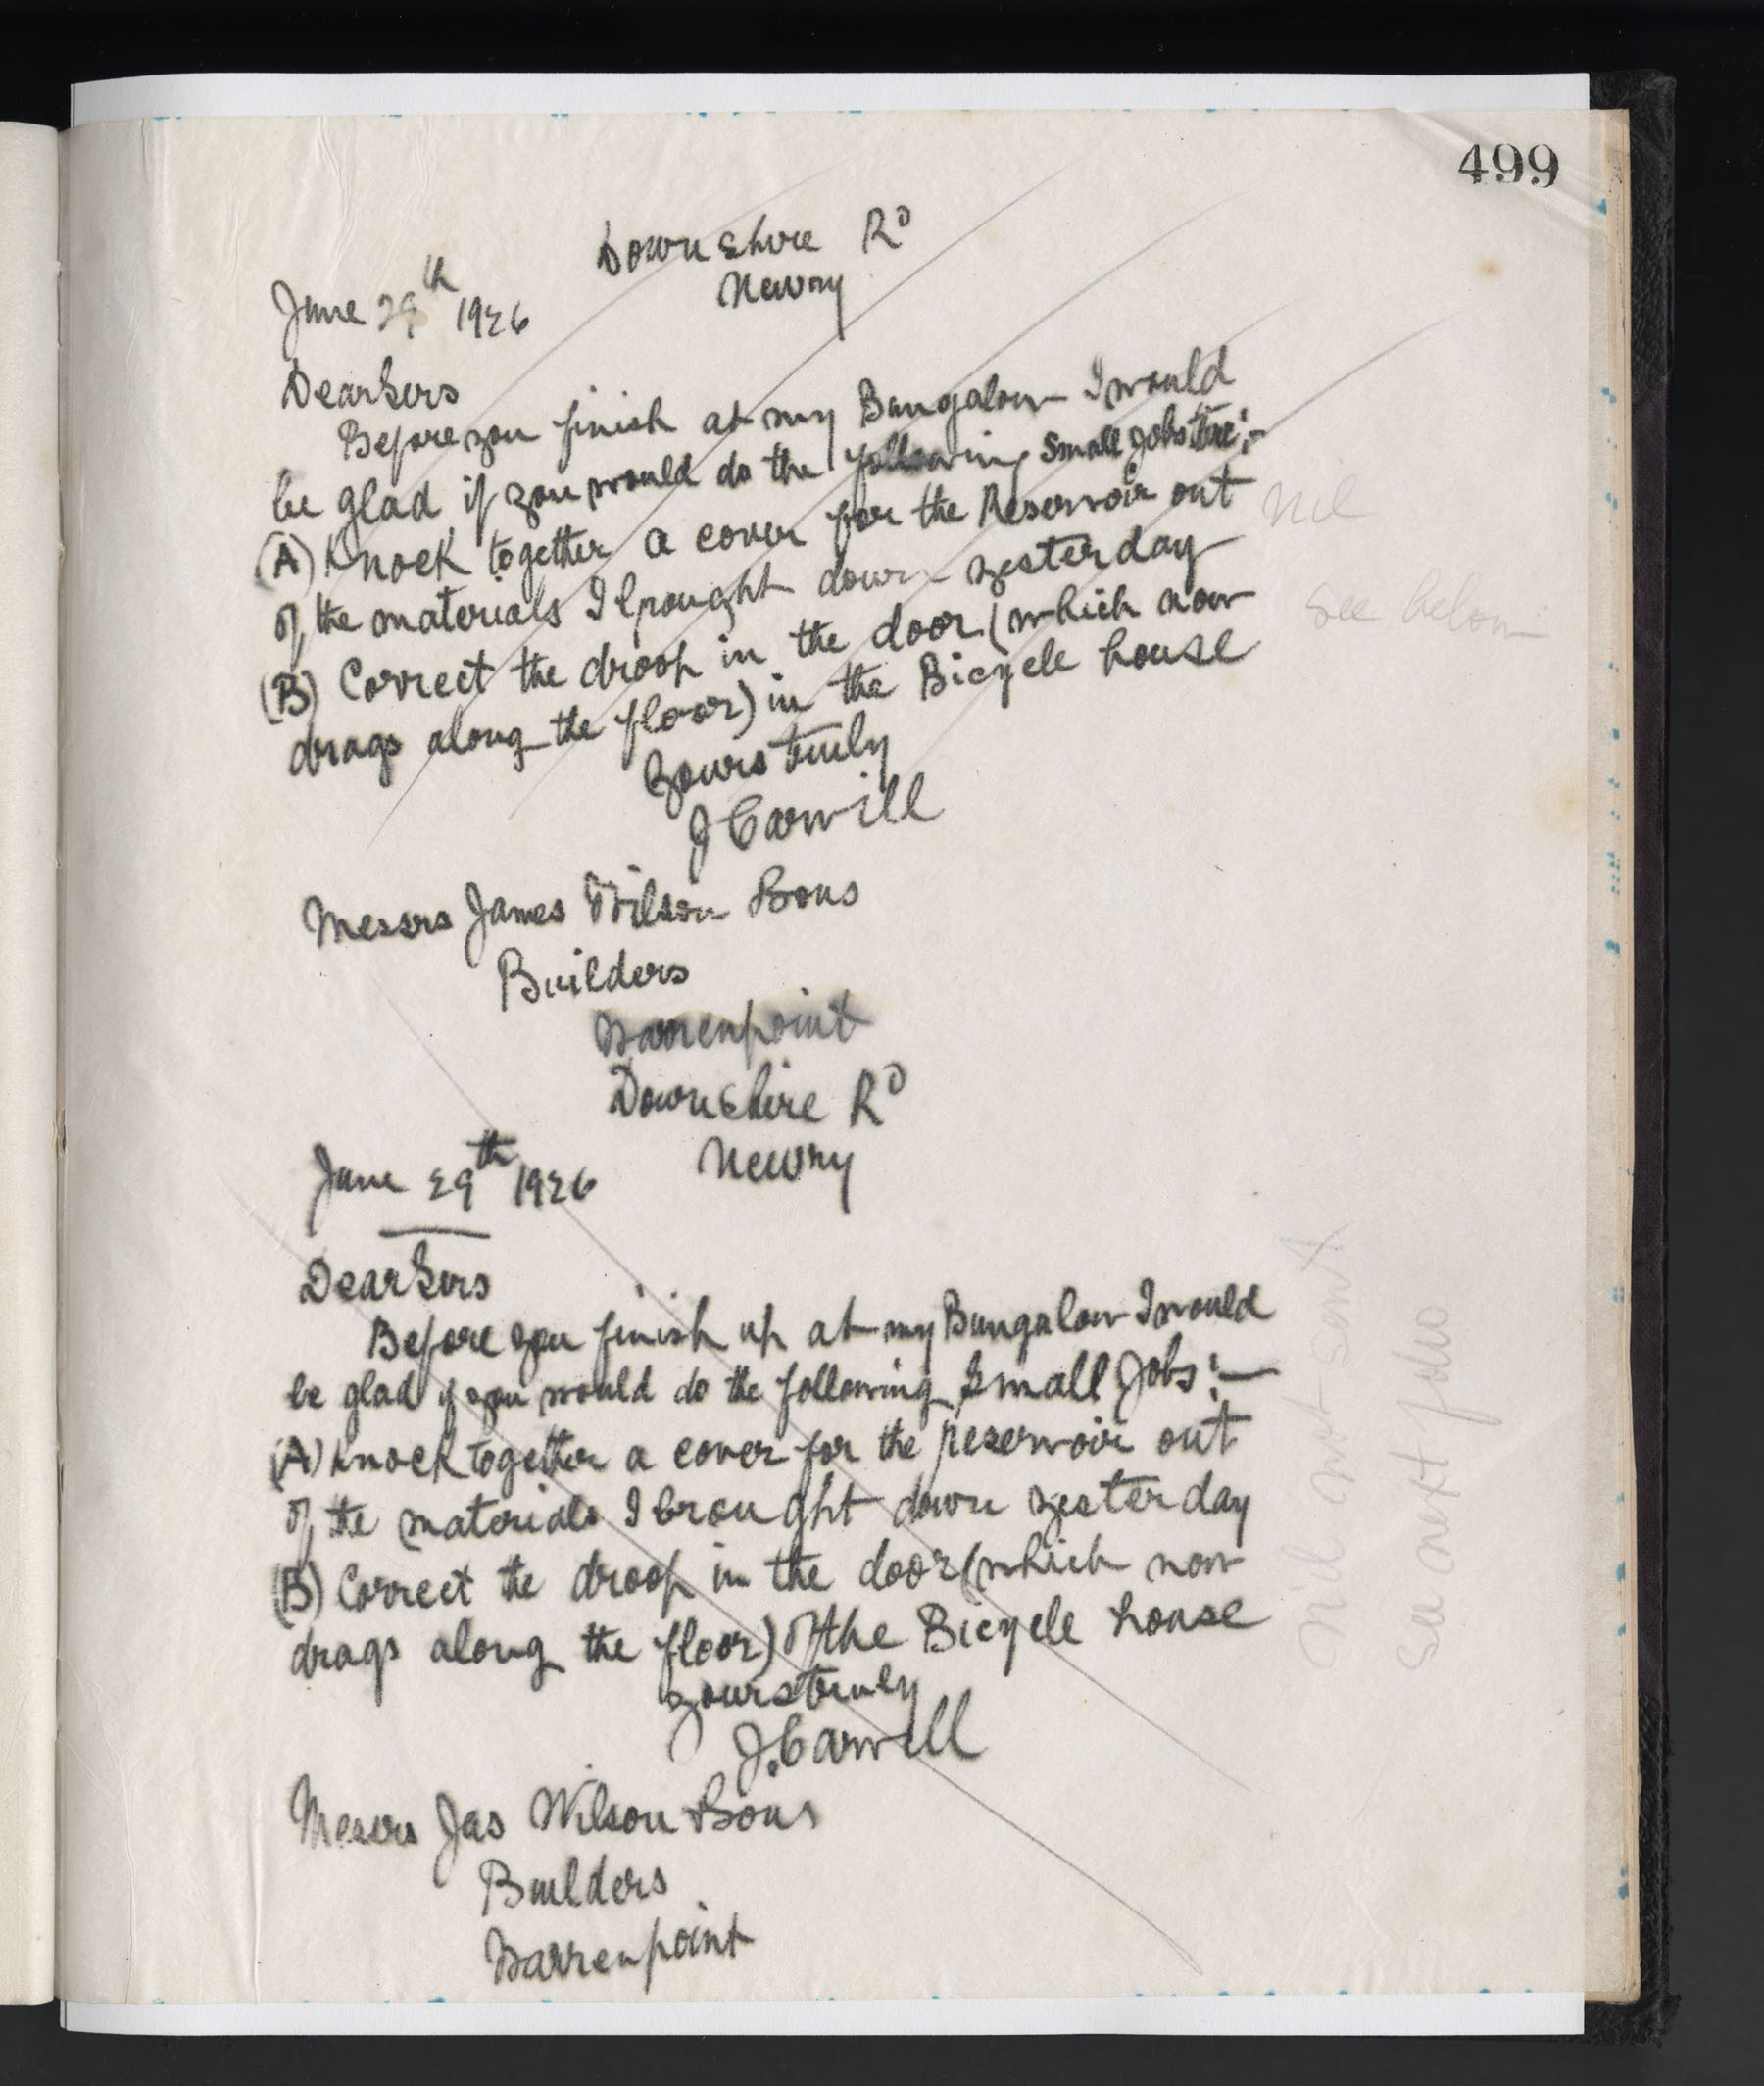 499
Downshire Rd
Newry
June 29th 1926
Dear Sirs
Before you finish at my Bungalow I would
be glad if you would do the following small jobs
(A) Knock together a cover for the Reservoir out
nil
of the materials I brought down yesterday
(B) Correct the droop in the door (which now
see below
drags along the floor) in the Bicycle house
Yours truly
J Carvill
Messrs James Wilson & Sons
Builders
Warrenpoint
Downshire Rd
Newry
June 29th 1926
Dear Sirs
Before you finish up at my Bungalow I would
be glad if you would do the following small Jobs:—
(A) Knock together a cover for the reservoir out
of the materials I brought down yesterday
(B) Correct the droop in the door (which now
drags along the floor) of the Bicycle house
Yours truly
J. Carvill
Messrs Jas Wilson & Sons
Builders
Warrenpoint
Nil not sent
see next folio